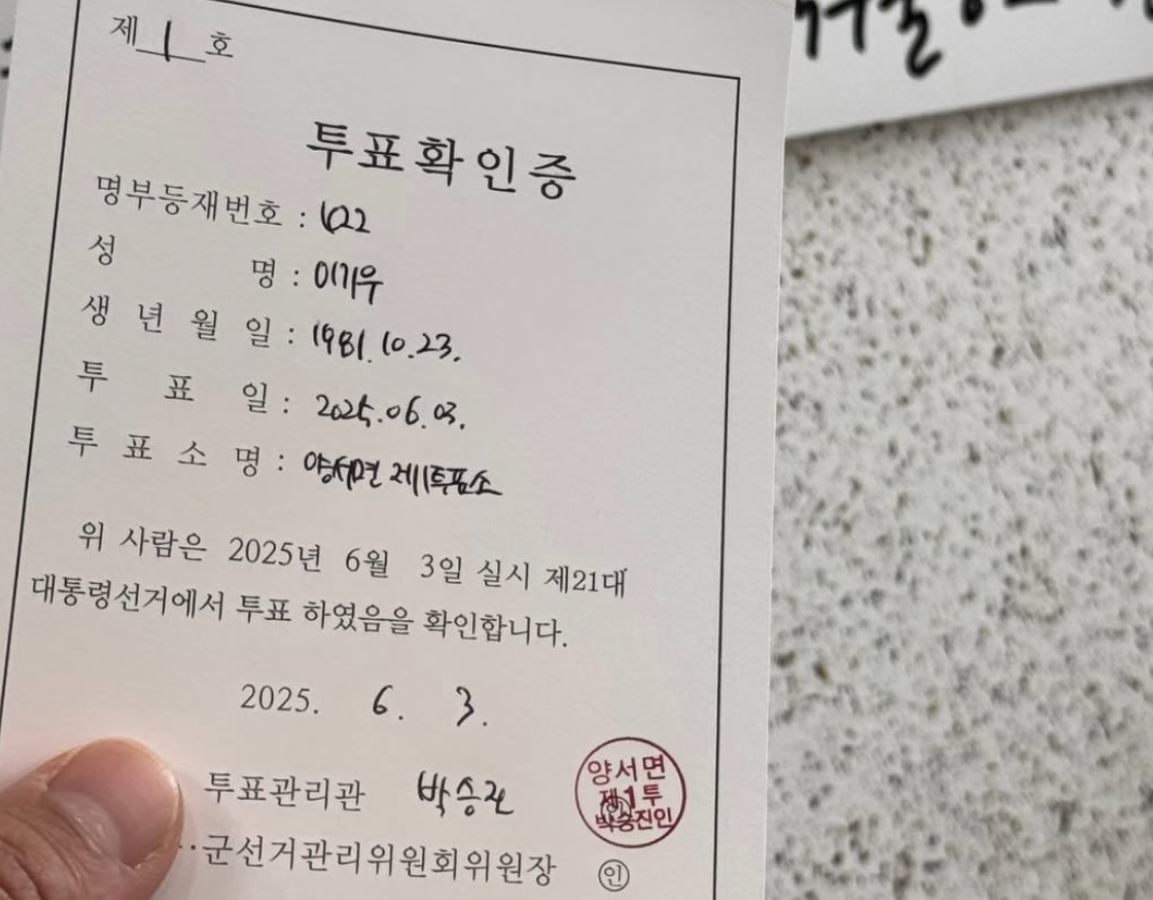 제 1 호
투표확인증
명부등재번호 : 622
성 명 : 이기우
생 년 월 일 : 1981.10.23.
투 표 일 : 2025.06.03.
투 표 소 명 : 양서면 제1투표소
위 사람은 2025년 6월 3일 실시 제21대
대통령선거에서 투표 하였음을 확인합니다.
2025. 6. 3.
투표관리관 박승진
양서면
제1투
박승진인
군선거관리위원회위원장 인